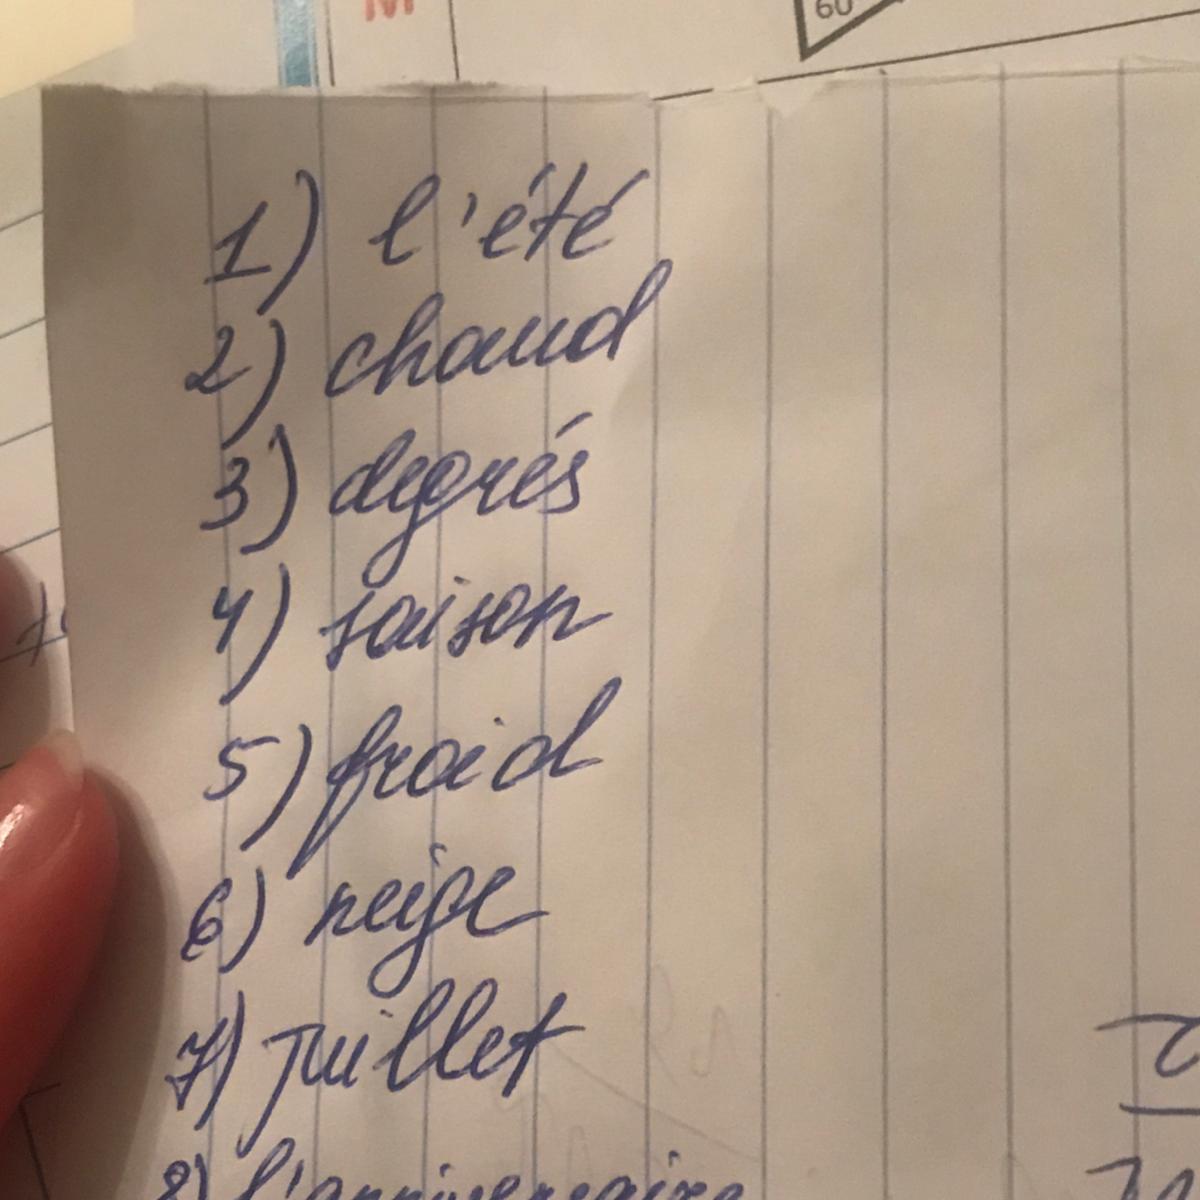 M
60
1) l'été
2) chaud
3) degrés
4) saison
5) froid
6) neige
7) juillet
8) l'anniversaire